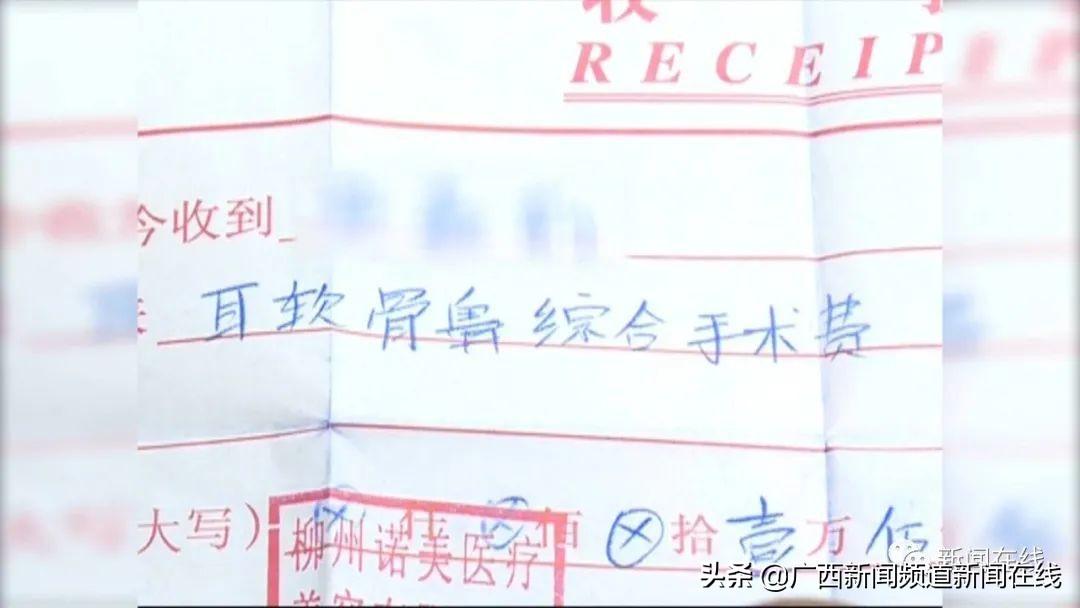 RECEIP
今收到
耳软骨鼻综合手术费
大写) 仟 佰 ⊗拾壹万
柳州诺美医疗
新闻在线
头条 @广西新闻频道新闻在线